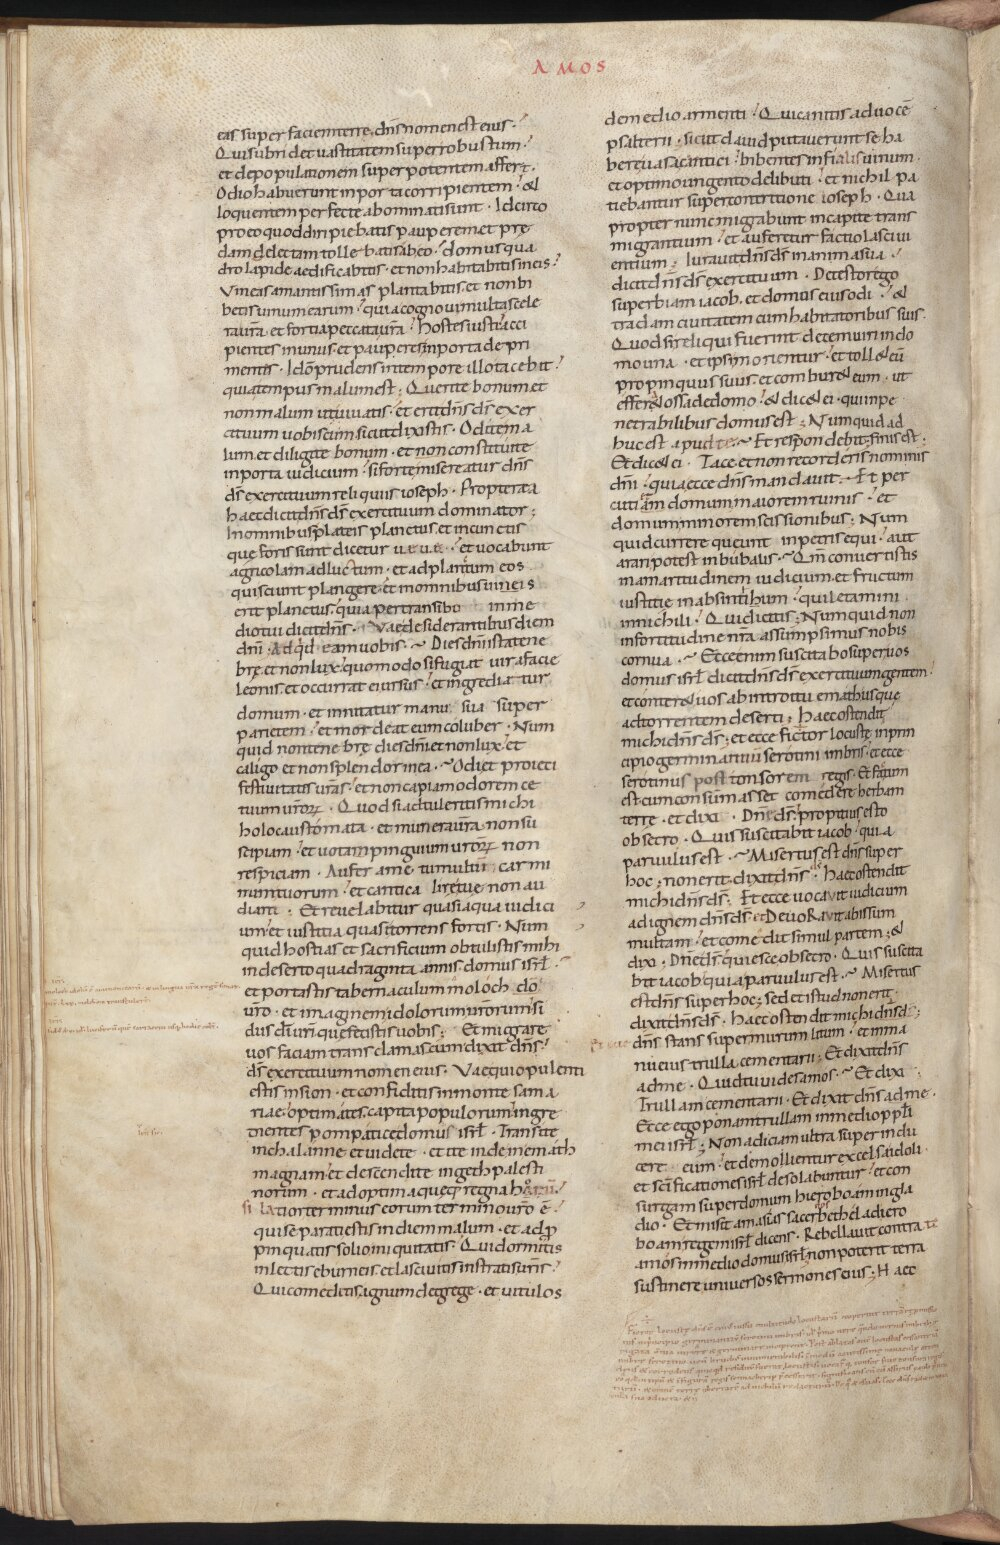 AMOS
eas super faciem terre. dns nomen est eius.
Qui subridet vastitatem super robustum.
et depopulationem super potentem affert.
Odio habuerunt in porta corripientem. &
loquentem perfecte abominati sunt. Idcirco
pro eo quod diripiebatis pauperem et pre
dam electam tollebatis ab eo. domus qua
dro lapide aedificabitis. et non habitabitis in eis.
Vineas amantissimas plantabitis. et non bi
betis uinum earum. quia cognoui multa scele
ra ura. et fortia peccata ura. Hostes iusti acci
pientes munus. et pauperes in porta depri
mentes. Ido prudens in tempore illo tacebit.
quia tempus malum est; Querite bonum et
non malum ut uiuatis. et erit dns ds exer
cituum uobiscum sicut dixistis. Odite ma
lum et diligite bonum. et constituite
in porta iudicium. si forte misereatur dns
ds exercituum reliquiis ioseph. Propterea
haec dicit dns ds exercituum dominator;
In omnibus plateis planctus. et in cunctis
que foris sunt dicetur ue. ue. et uocabunt
agricolam ad luctum. et ad planctum eos
qui sciunt plangere. et in omnibus uineis
erit planctus. quia pertransibo in me
dio tui dicit dns. Vae desiderantibus diem
dni. Ad qd eam uobis. Dies dni ista tene
bre et non lux. quomodo si fugiat uir a facie
leonis. et occurrat ei ursus. et ingrediatur
domum. et innitatur manu sua super
parietem. et mordeat eum coluber. Num
quid non tenebre dies dni et non lux. et
caligo et non splendor in ea. Odi et proieci
festiuitates uras. et non capiam odorem ce
tuum uror. Quod si adtuleritis michi
holocaustomata. et munera ura. non su
scipiam. et uota pinguium uror non
respiciam. Aufer a me tumultum carmi
num tuorum. et cantica lire tue non au
diam. Et reuelabitur quasi aqua iudici
um. et iustitia quasi torrens fortis. Num
quid hostias et sacrificium obtulistis mihi
in deserto quadraginta annis. domus isrl.
et portastis tabernaculum moloch do
uro. et imaginem idolorum urorum. si
dus di uri que fecistis uobis. Et migrare
uos faciam trans damascum dixit dns.
ds exercituum nomen eius. Vae qui opulenti
estis in sion. et confiditis in monte sama
riae. optimates. capita populorum. ingre
dientes pompatice domus isrl. Transite
in chalanne et uidete. et ite inde in emath
magnam. et descendite in geth palesti
norum. et ad optima queque regna horum.
si latior terminus eorum termino uro e.
qui separati estis in diem malum. et adpro
pinquatis solio iniquitatis. Qui dormitis
in lectis eburneis. et lasciuitis in stratis uris.
Qui comeditis agnum de grege. et uitulos
de medio armenti. Qui canitis ad uoce
psalterii. sicut dauid putauerunt se ha
bere uasa cantici. bibentes in fialis uinum.
et optimo ungento delibuti. et nichil pa
tiebantur super contritione ioseph. Qua
propter nunc migrabunt in capite trans
migrantium. et auferetur factio lasciui
entium; Iurauit dns ds in anima sua.
dicit dns ds exercituum. Detestor ego
superbiam iacob. et domus eius odi. &
tradam ciuitatem cum habitatoribus suis.
Quod si reliqui fuerint decem uiri in do
mo una. et ipsi morientur. et toll& eu
propinquus suus. et combur& eum. ut
effer& ossa de domo. & dic& ei. qui in pe
netrabilibus domus est; Numquid ad
huc est apud te. Et respondebit. finis est.
Et dic& ei. Tace et non recorderis nominis
dni. quia ecce dns mandauit. Et per
cutiam domum maiorem ruinis. et
domum minorem scissionibus; Num
quid currere queunt in petris equi. aut
arari potest in bubalis. Qm conuertistis
in amaritudinem iudicium. et fructum
iustitie in absinthium. qui letamini
in nichili. Qui dicitis; Numquid non
in fortitudine nra assumpsimus nobis
cornua. Ecce enim suscitabo super uos
domus isrl dicit dns ds exercituum gentem.
et conter& uos ab introitu emath. usque
ad torrentem deserti; Haec ostendit
michi dns ds; et ecce fictor locuste in prin
cipio germinantium serotini imbris. et ecce
serotinus post tonsorem regis. Et factum
est. cum consumasset comedere herbam
terre. et dixi. Dne ds. propitius esto
obsecro. Quis suscitabit iacob. quia
paruulus est. Misertus est dns super
hoc; non erit. dixit dns. Haec ostendit
michi dns ds; Et ecce uocauit iudicium
ad ignem dns ds. et DeuoRavit abissum
multam. et comedit simul partem; &
dixi. Dne ds quiesce obsecro. Quis suscita
bit iacob. quia paruulus est. Misertus
est dns super hoc; sed et istud non erit.
dixit dns ds. Haec ostendit michi dns ds;
dns stans super murum litum. et in ma
nu eius trulla cementarii; Et dixit dns
ad me. Quid tu uides amos. Et dixi
Trullam cementarii. Et dixit dns ad me.
Ecce ego ponam trullam in medio ppli
mei isrl; Non adiciam ultra super indu
cere eum. et demolientur excelsa idoli.
et scificationes isrl desolabuntur. et con
surgam super domum hieroboam in gla
dio. Et misit amasias sacerdos beth&l ad iero
boam regem isrl dicens. Rebellauit contra te
amos in medio domus isrl. non poterit terra
sustinere uniuersos sermones eius; Haec